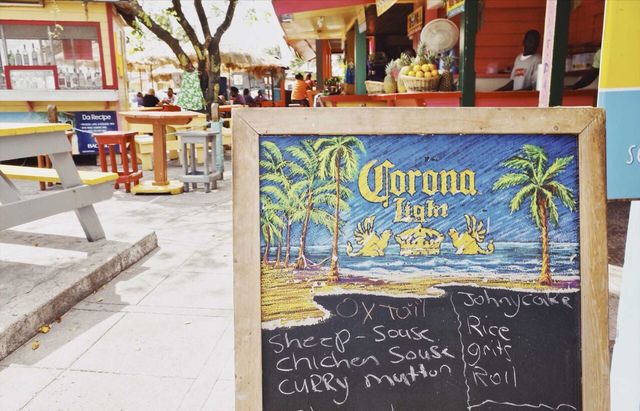 Da Recipe
Corona
Light
Ox Tail
Sheep-Souse
Chicken Souse
Curry mutton
Johnycake
Rice
grits
Roll